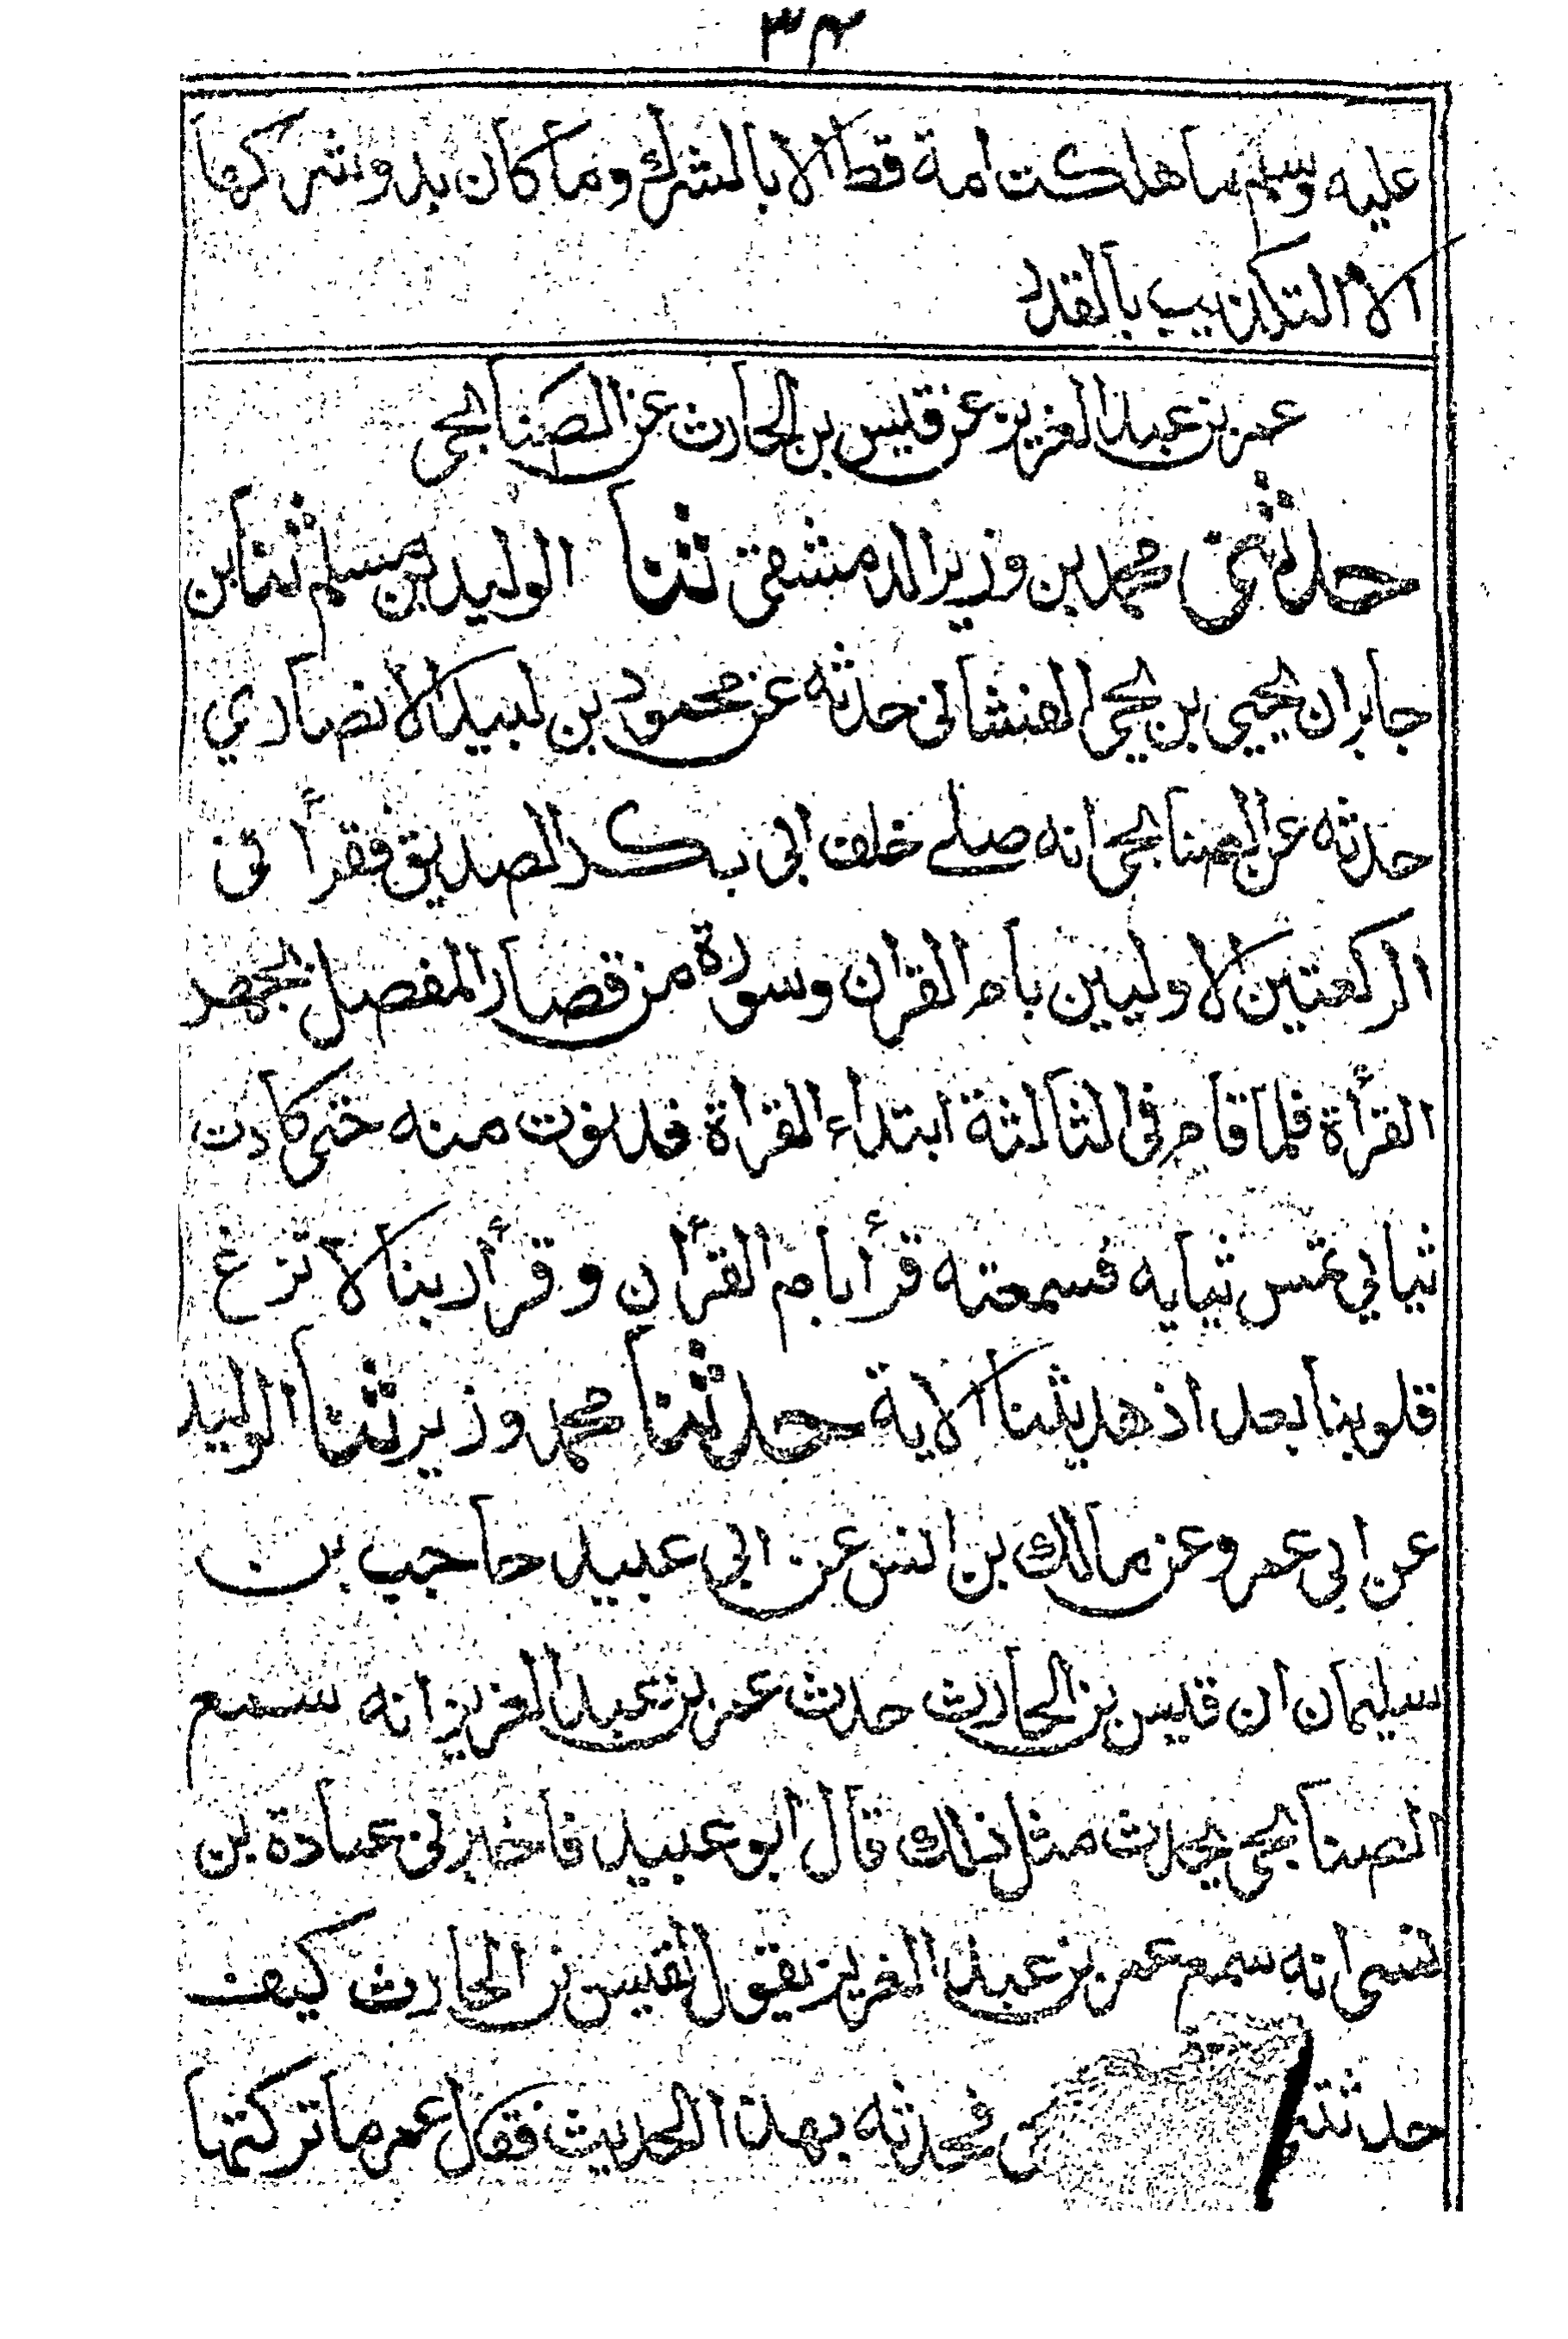 ٣٤
عليه وسلم ما هلكت امة قط الا بالشرك وما كان بدو شركها
الا التكذيب بالقدر
عمر بن عبد العزيز عن قيس بن الحارث عن الصنابحي
حدثني محمد بن وزير الدمشقي ثنا الوليد بن مسلم ثنا ابن
جابر ان يحيي بن يحيى الغشاني حدثه عن محمود بن لبيد الانصاري
حدثه عن الصنابحي انه صلے خلف ابى بكر الصديق فقرأ فى
الركعتين الاوليين بام القران وسورة من قصار المفصل يجهر
القرأة فلما قام فى الثالثة ابتداء القراة فدنوت منه حتى كادت
ثيابي تمس ثيابه فسمعته قرأ بام القرأن وقرأ ربنا لا تزغ
قلوبنا بعد اذ هديتنا الاية حدثنا محمد وزير ثنا الوليد
عن ابى عمرو عن مالك بن انس عن ابى عبيد حاجب بن
سليمان ان قيس بن الحارث حدث عمر بن عبد العزيز انه سمع
الصنابحي يحدث مثل ذلك قال ابو عبيد فاخبرنى عبادة بن
نسى انه سمع عمر بن عبد العزيز يقول لقيس بن الحارث كيف
حدثتنى فحدثه بهذا الحديث فقال عمر ما تركتها